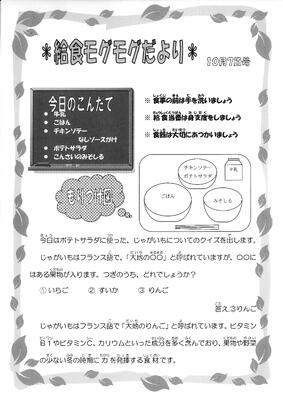 ＊給食モグモグだより＊
10月7日号
今日のこんだて
・牛乳
・ごはん
・チキンソテー
なしソースがけ
・ポテトサラダ
・こんさいのみそしる
※ 食事の前は手を洗いましょう
※ 給食当番は身支度をしましょう
※ 食器は大切にあつかいましょう
もりつけ図
チキンソテー
ポテトサラダ
牛乳
ごはん
みそしる
今日はポテトサラダに使った、じゃがいもについてのクイズを出します。
じゃがいもはフランス語で、「大地の〇〇」と呼ばれていますが、〇〇に
はある果物が入ります。つぎのうち、どれでしょうか？
①いちご ②すいか ③りんご
答え.③りんご
じゃがいもはフランス語で「大地のりんご」と呼ばれています。ビタミン
B1やビタミンC、カリウムといった成分を多く含んでおり、果物や野菜
の少ない冬の時期に力を発揮する食材です。